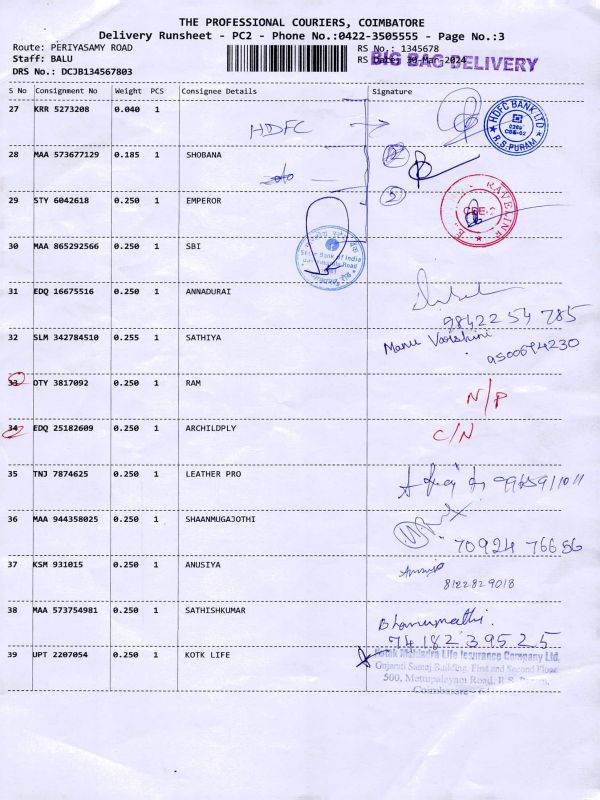 THE PROFESSIONAL COURIERS, COIMBATORE
Delivery Runsheet - PC2 - Phone No.:0422-3505555 - Page No.:3
Route: PERIYASAMY ROAD
Staff: BALU
DRS No.: DCJB134567803
RS No.: 1345678
RS Date: 30-Mar-2024
BIG BAG DELIVERY
S No Consignment No Weight PCS Consignee Details Signature
27 KRR 5273208 0.040 1
HDFC
HDFC BANK LTD
CBE-02
R.S.PURAM
28 MAA 573677129 0.185 1 SHOBANA
29 STY 6042618 0.250 1 EMPEROR
30 MAA 865292566 0.250 1 SBI
State Bank of India
31 EDQ 16675516 0.250 1 ANNADURAI
98422 54 785
32 SLM 342784510 0.255 1 SATHIYA
Manu Varshini
33 OTY 3817092 0.250 1 RAM
N/P
34 EDQ 25182609 0.250 1 ARCHILDPLY
C/N
35 TNJ 7874625 0.250 1 LEATHER PRO
36 MAA 944358025 0.250 1 SHAANMUGAJOTHI
70924 76686
37 KSM 931015 0.250 1 ANUSIYA
8122829018
38 MAA 573754981 0.250 1 SATHISHKUMAR
Bhanumathi.
7418239525
39 UPT 2207054 0.250 1 KOTK LIFE
Kotak Mahindra Life Insurance Company Ltd.
Gujarati Samaj Building, First and Second Floor
500, Mettupalayam Road, R.S. Puram,
Coimbatore